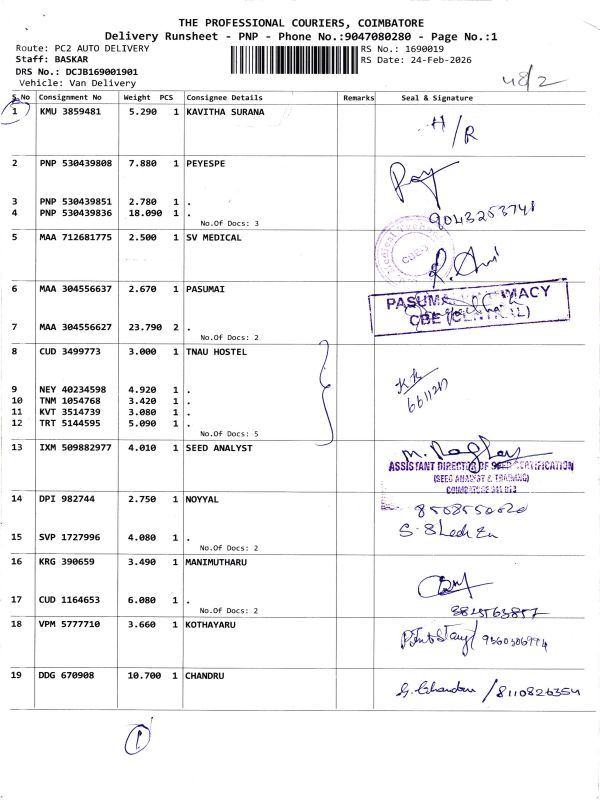 THE PROFESSIONAL COURIERS, COIMBATORE
Delivery Runsheet - PNP - Phone No.:9047080280 - Page No.:1
Route: PC2 AUTO DELIVERY RS No.: 1690019
Staff: BASKAR RS Date: 24-Feb-2026
DRS No.: DCJB169001901
Vehicle: Van Delivery
48/2
S.No Consignment No Weight PCS Consignee Details Remarks Seal & Signature
1 KMU 3859481 5.290 1 KAVITHA SURANA
H/R
2 PNP 530439808 7.880 1 PEYESPE
3 PNP 530439851 2.780 1 .
4 PNP 530439836 18.090 1 .
9043253741
No.Of Docs: 3
5 MAA 712681775 2.500 1 SV MEDICAL
CBE-
6 MAA 304556637 2.670 1 PASUMAI
PASUM MACY
CBE (CENTRAL)
7 MAA 304556627 23.790 2 .
No.Of Docs: 2
8 CUD 3499773 3.000 1 TNAU HOSTEL
9 NEY 40234598 4.920 1 .
10 TNM 1054768 3.420 1 .
11 KVT 3514739 3.080 1 .
12 TRT 5144595 5.090 1 .
No.Of Docs: 5
13 IXM 509882977 4.010 1 SEED ANALYST
ASSISTANT DIRECTOR OF SEED CERTIFICATION
(SEED ANALYST & TRAINING)
14 DPI 982744 2.750 1 NOYYAL
15 SVP 1727996 4.080 1 .
No.Of Docs: 2
16 KRG 390659 3.490 1 MANIMUTHARU
17 CUD 1164653 6.080 1 .
No.Of Docs: 2
18 VPM 5777710 3.660 1 KOTHAYARU
19 DDG 670908 10.700 1 CHANDRU
G. Chandru / 8110826354